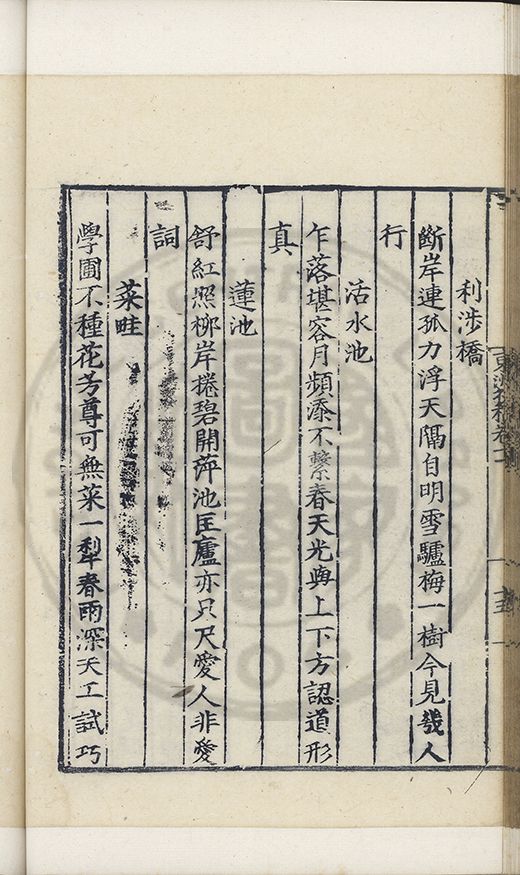 東洲初稿卷
利涉橋
斷岸連孤力浮天隅自明雪驢梅一樹今見幾人
行
活水池
乍落堪容月頻添不繫春天光與上下方認道形
真
蓮池
舒紅照柳岸捲碧開萍池匡廬亦只尺愛人非愛
詞
菜畦
學圃不種花芳尊可無菜一犁春雨深天工試巧